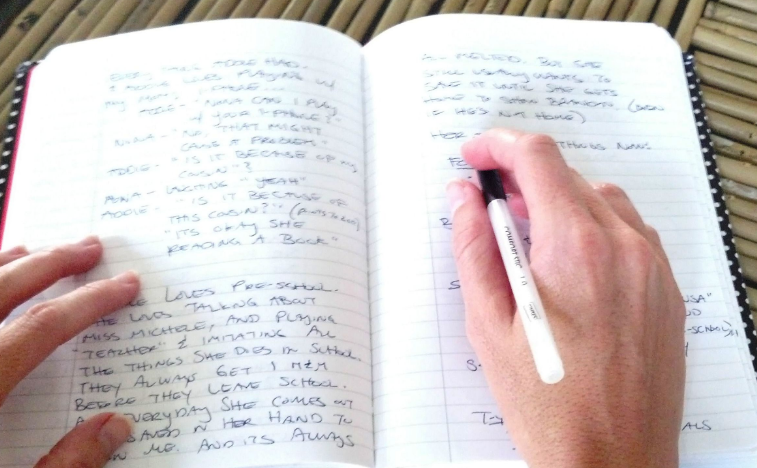 ADDIE HAD
ADDIE LOVES PLAYING W/
MY
ADDIE - "NANA CAN I PLAY
W/ YOUR I-PHONE?"
NANA - "NO, THAT MIGHT
CAUSE A PROBLEM"
ADDIE - "IS IT BECAUSE OF MY
COUSIN"?
NANA - "YEAH"
ADDIE - "IS IT BECAUSE OF
THIS COUSIN?" (POINTS TO
"ITS OKAY SHE
READING A BOOK"
LOVES PRE-SCHOOL.
SHE LOVES TALKING ABOUT
MISS MICHELE, AND PLAYING
"TEACHER" & IMITATING ALL
THE THINGS SHE DOES IN SCHOOL.
THEY ALWAYS GET 1 M&M
BEFORE THEY LEAVE SCHOOL.
EVERYDAY SHE COMES OUT
SAVED IN HER HAND TO
ME. AND ITS ALWAYS
MELTED. BUT SHE
STILL USUALLY WANTS TO
SAVE IT UNTIL SHE GETS
HOME TO SHOW (EVEN
IF HE'S NOT HOME)
HER THINGS NOW: